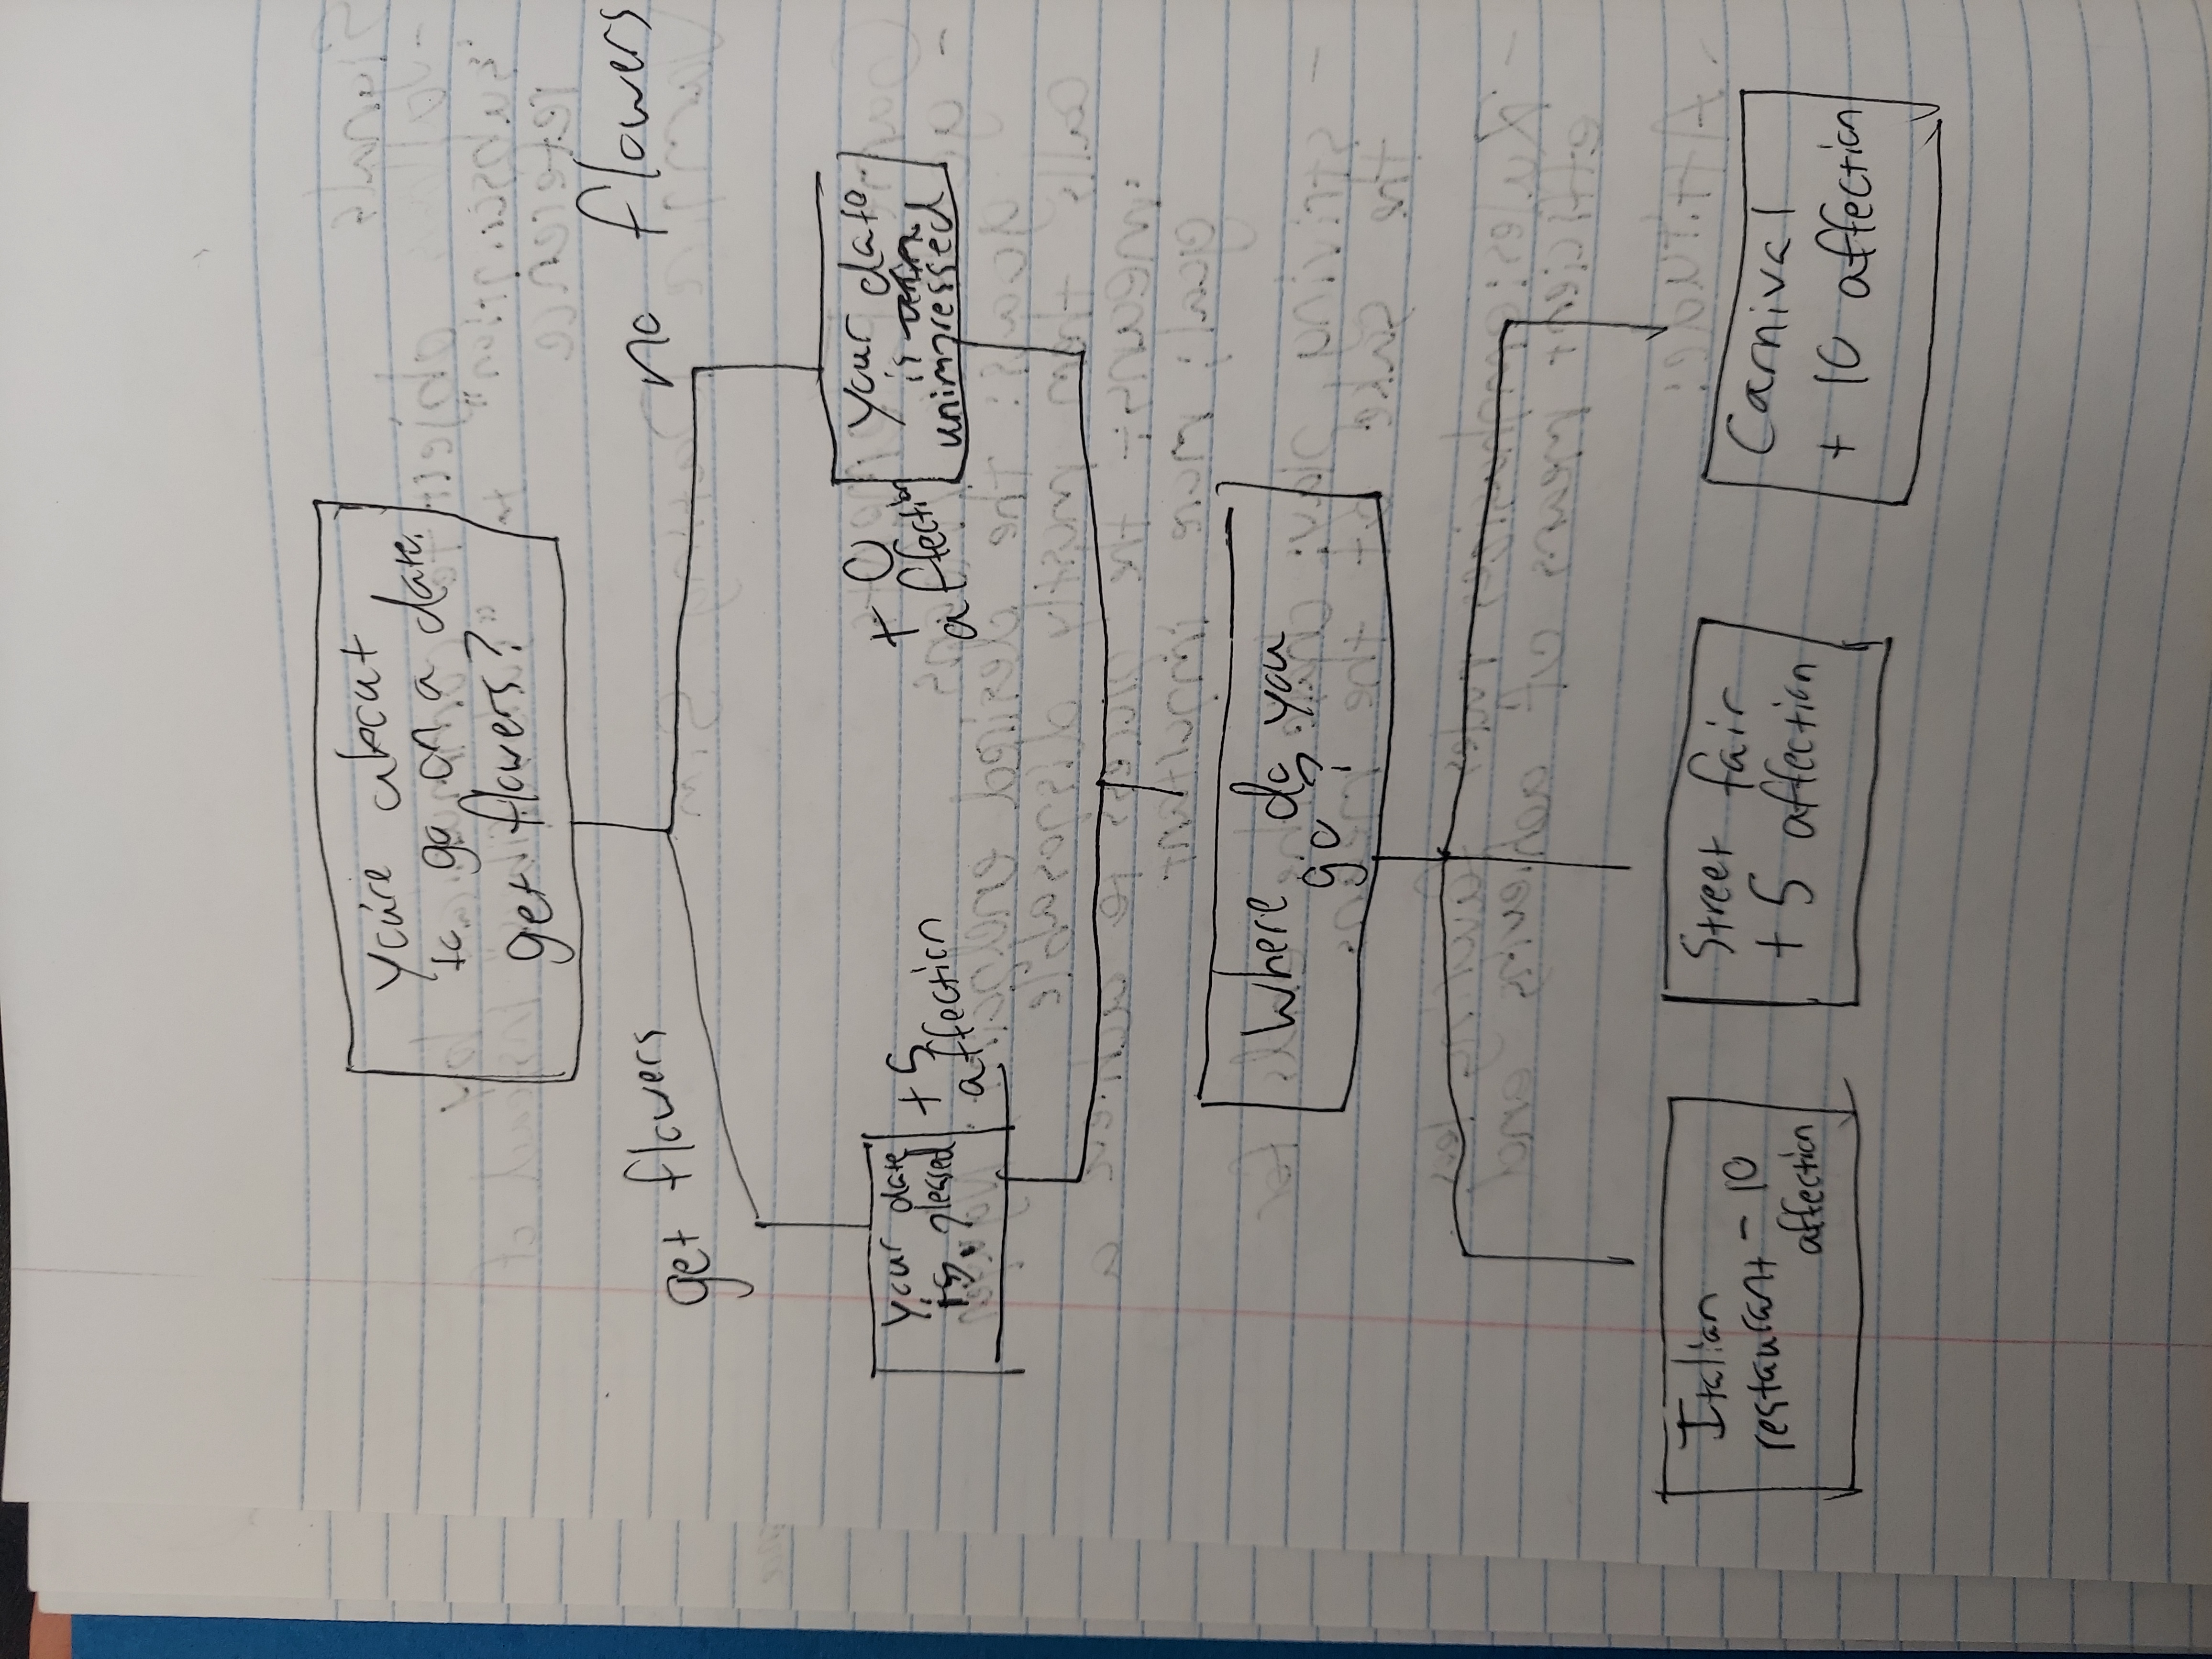 You're about
to go on a date.
get flowers?
get flowers
no flowers
your date
is pleased
+5
affection
+0
affection
your date
is
unimpressed
Where do you
go?
Italian
restaurant -10
affection
Street fair
+5 affection
Carnival
+10 affection